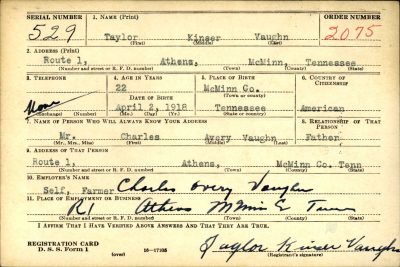 SERIAL NUMBER 1. NAME (Print) ORDER NUMBER
529 Taylor Kinser Vaughn 2075
(First) (Middle) (Last)
2. ADDRESS (Print)
Route 1, Athens, McMinn, Tennessee
(Number and street or R. F. D. number) (Town) (County) (State)
3. TELEPHONE 4. AGE IN YEARS 5. PLACE OF BIRTH 6. COUNTRY OF CITIZENSHIP
22 McMinn Co.
None DATE OF BIRTH (Town or county)
April 2, 1918 Tennessee American
(Exchange) (Number) (Mo.) (Day) (Yr.) (State or country)
7. NAME OF PERSON WHO WILL ALWAYS KNOW YOUR ADDRESS 8. RELATIONSHIP OF THAT PERSON
Mr. Charles Avery Vaughn Father
(Mr., Mrs., Miss) (First) (Middle) (Last)
9. ADDRESS OF THAT PERSON
Route 1, Athens, McMinn Co. Tenn
(Number and street or R. F. D. number) (Town) (County) (State)
10. EMPLOYER'S NAME
Self, Farmer Charles Overy Vaughn
11. PLACE OF EMPLOYMENT OR BUSINESS
R1 Athens McMinn Tenn
(Number and street or R. F. D. number) (Town) (County) (State)
I AFFIRM THAT I HAVE VERIFIED ABOVE ANSWERS AND THAT THEY ARE TRUE.
REGISTRATION CARD
D. S. S. Form 1 (over) 16—17105 Taylor Kinser Vaughn
(Registrant's signature)